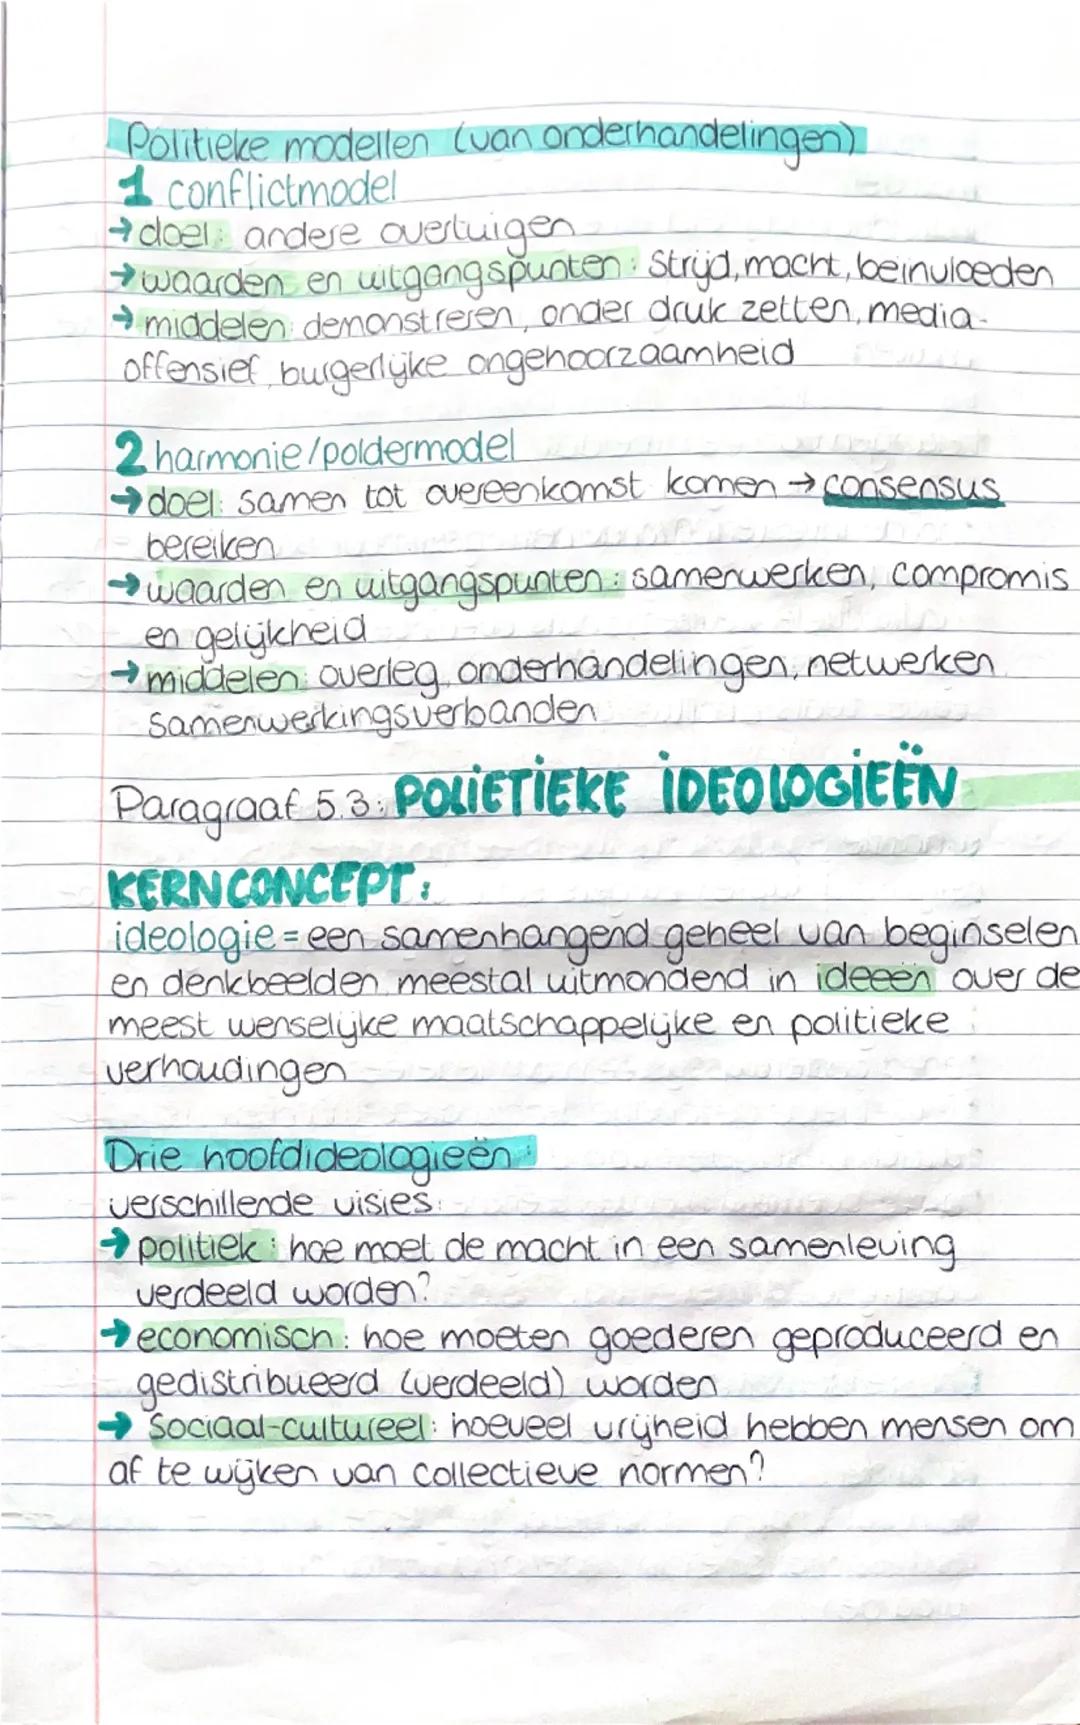 Politieke modellen (van onderhandelingen)
1 conflictmodel
→ doel: andere overtuigen
→ waarden en uitgangspunten: Strijd, macht, beinvloeden
→ middelen: demonstreren, onder druk zetten, media-
offensief, burgerlijke ongehoorzaamheid
2 harmonie/poldermodel
→ doel: samen tot overeenkomst komen → consensus
bereiken
→ waarden en uitgangspunten: samenwerken, compromis
en gelijkheid
→ middelen: overleg, onderhandelingen, netwerken
samenwerkingsverbanden
Paragraaf 5.3: POLIETIEKE IDEOLOGIEËN
KERNCONCEPT:
ideologie = een samenhangend geheel van beginselen
en denkbeelden meestal uitmondend in ideeën over de
meest wenselijke maatschappelijke en politieke
verhoudingen
Drie hoofdideologieën:
verschillende visies:
→ politiek: hoe moet de macht in een samenleving
verdeeld worden?
→ economisch: hoe moeten goederen geproduceerd en
gedistribueerd (verdeeld) worden
→ Sociaal-cultureel: hoeveel vrijheid hebben mensen om
af te wijken van collectieve normen?